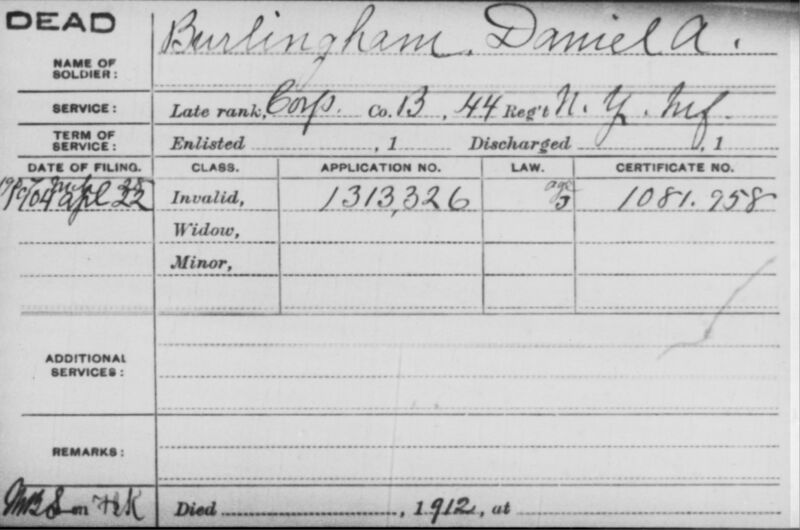 DEAD
NAME OF SOLDIER: Burlingham, Daniel A.
SERVICE: Late rank, Corp. Co. B, 44 Reg't N. Y. Inf.
TERM OF SERVICE: Enlisted , 1 Discharged , 1
DATE OF FILING. CLASS. APPLICATION NO. LAW. CERTIFICATE NO.
age
1904 Apl 22 Invalid, 1313,326 3 1081.958
Widow,
Minor,
ADDITIONAL SERVICES:
REMARKS:
on Died , 1912, at